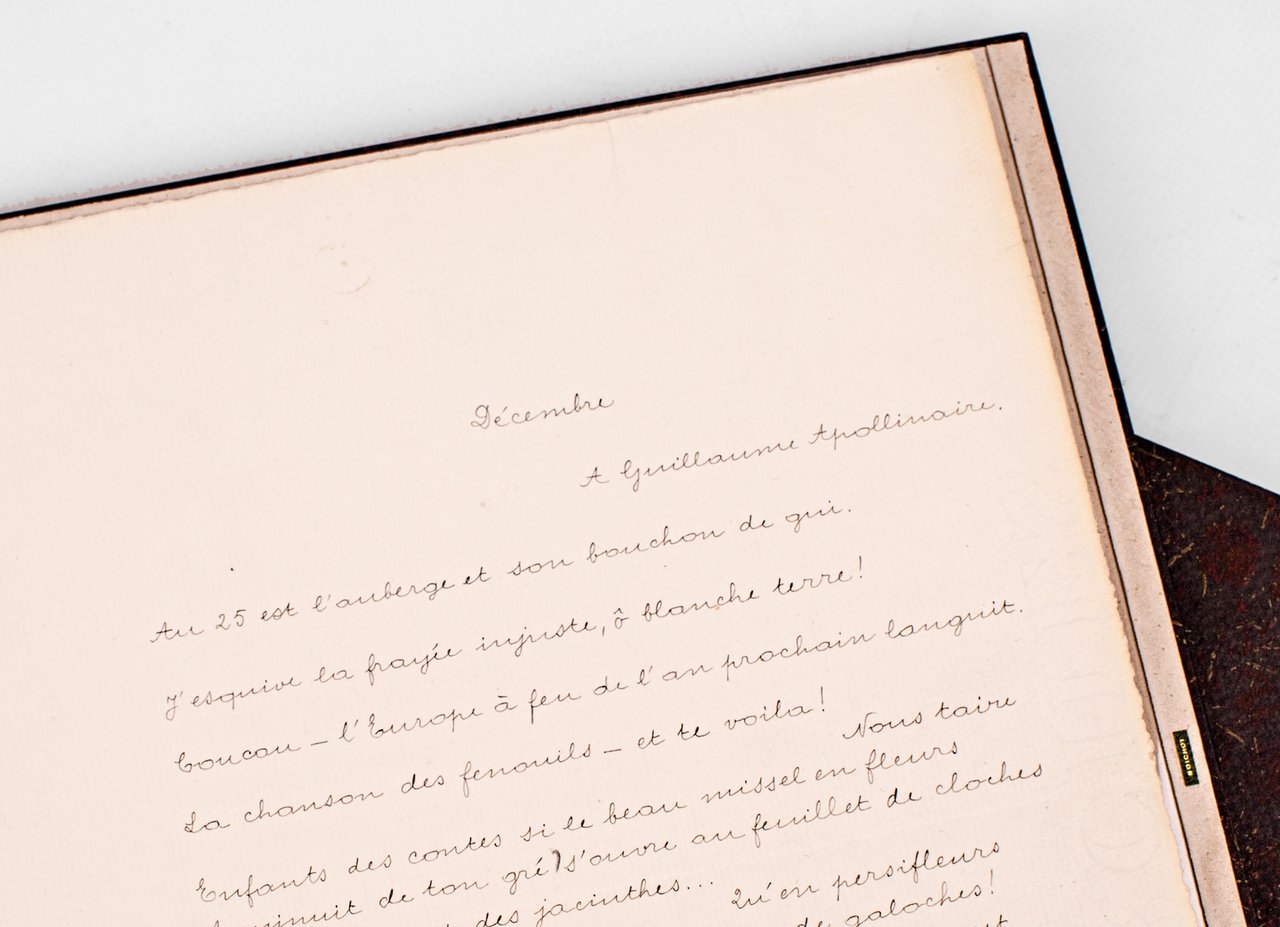 Décembre
A Guillaume Apollinaire.
Au 25 est l'auberge et son bouchon de gui.
J'esquive la frayée injuste, ô blanche terre!
Coucou – l'Europe à feu de l'an prochain languit.
La chanson des fenouils – et te voila!
Nous taire
Enfants des contes si le beau missel en fleurs
minuit de ton gré) s'ouvre au feuillet de cloches
des jacinthes...
Qu'en persifleurs
de galoches!
BOICHOT